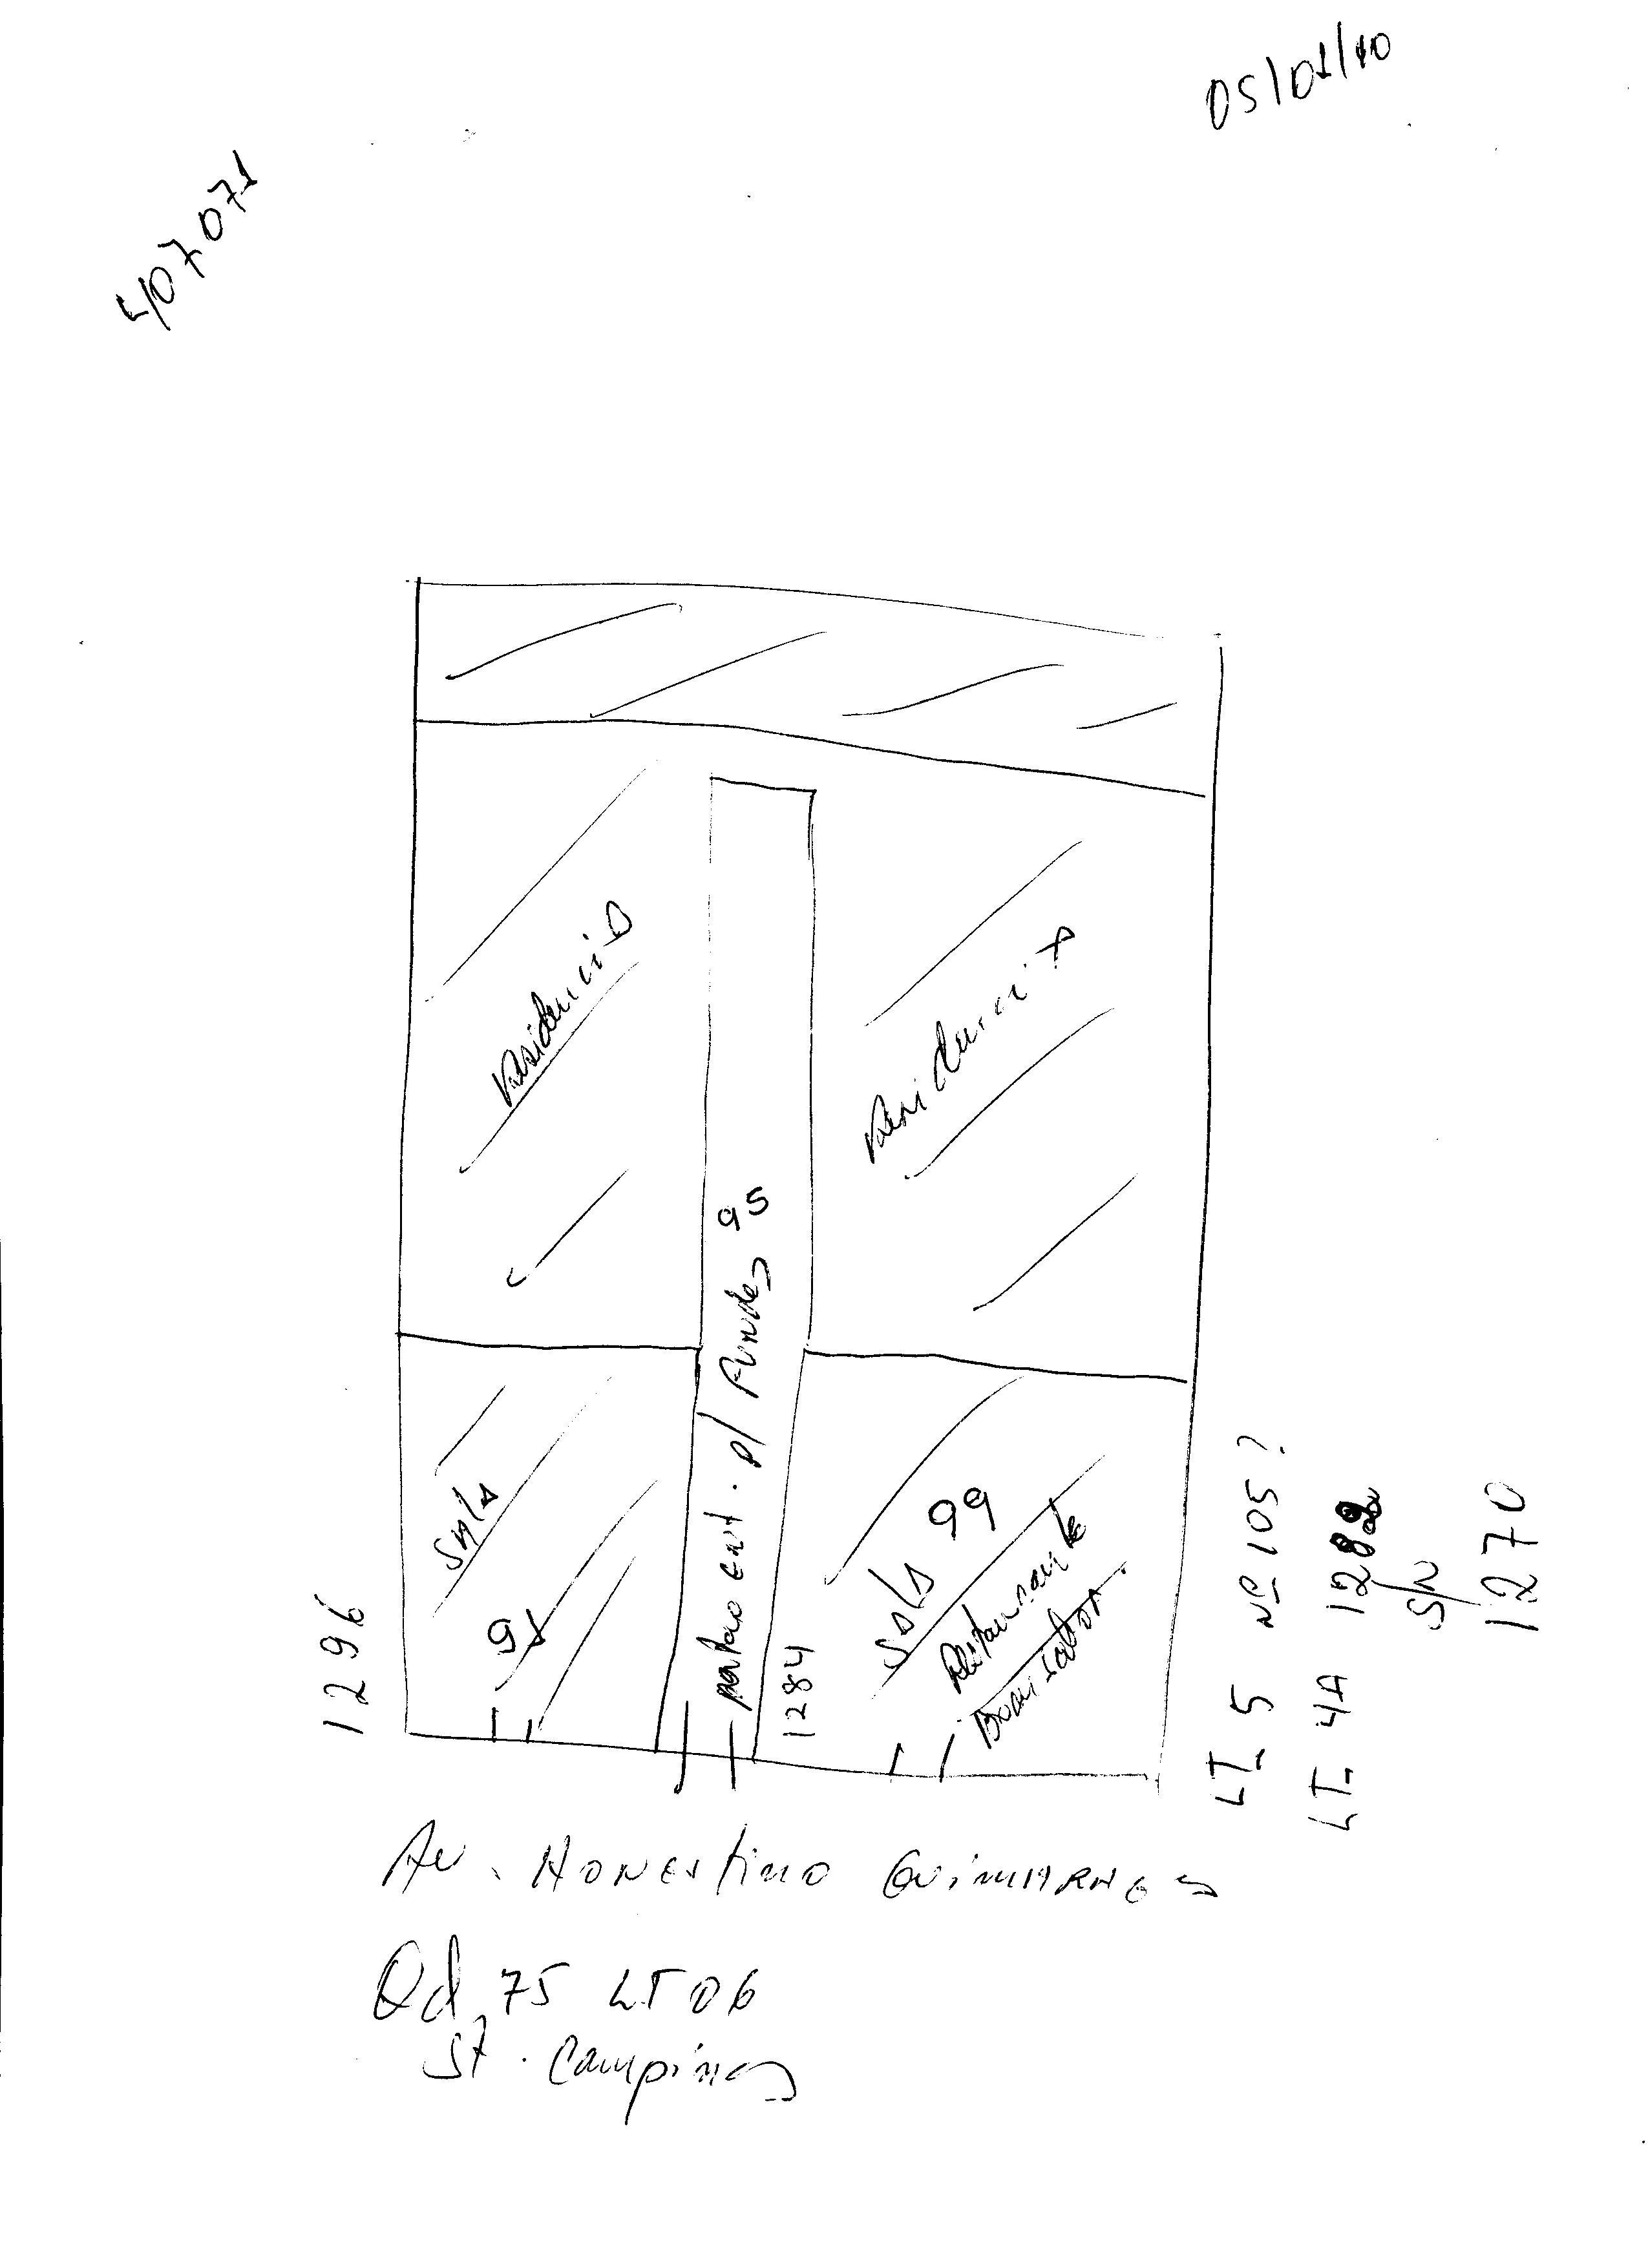 05/01/10
407.071
Residencia
Residencia
portao ent. p/ Fundos 95
Sala
91
Sala 99
Restaurante
1296
1284
LT 5 Nº 105?
LT- 4A 1282
S/N
1270
Av. HONEStino GuimARAES
Qd 75 LT 06
St. Campinas